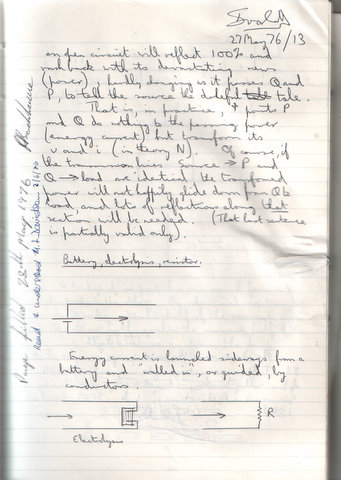 27 May 76/13
an open circuit will reflect 100% and
rush back with its devastating news
(power), hardly changing as it passes Q and
P, to tell the source its doleful tale.
That is, in practice, points P
and Q do nothing to the passing power
(energy current) but transform its
v and i (in theory N). Of course, if
the transmission lines Source → P and
Q → load are identical the transformed
power will not happily glide down from Q to
load and lots of reflections along that
section will be needed. (That last sentence
is partially valid only).
Battery, electrolysis, resistor.
Energy current is launched sideways from a
battery and "walled in", or guided, by
conductors.
R
Electrolysis
Page filled 28th May 1976
Read & understood